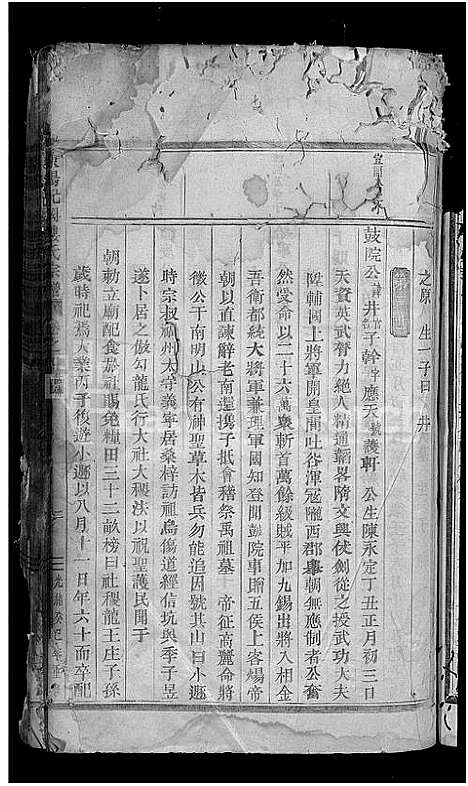 之原 生一子曰 井
鼓院公諱井子幹字應天號護軒 公生陳永定丁丑正月初三日
天資英武膂力絶人精通韜畧隋文興仗劍從之授武功大夫
陞輔國上將軍開皇間吐谷渾宼隴西郡舉朝無應制者公奮
然受命以二十六萬衆斬首萬餘級賊平加九錫出將入相金
吾衛都統大將軍兼理軍國知登聞彭院事贈五侯上客煬帝
朝以直諫辭老南還擕子抵會稽祭禹祖墓 帝征高麗命將
徵公于南明山公有神聖草木皆兵勿能追因號其山曰小遯
時宗叔祖州太守義寧居桑梓訪祖烏傷道經信坑與季子昱
遂卜居之倣勾龍氏行大社大稷汏以祝聖護民開于
朝勅立廟配食於社賜免糧田三十二畝榜曰社稷龍王庄子孫
歲時祀焉大業丙子後遊小遯以八月十一日年六十而卒配